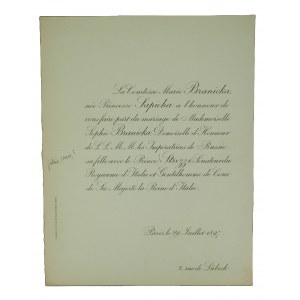 La Comtesse Marie Branicka,
née Princesse Sapieha a l'honneur de
vous faire part du mariage de Mademoiselle
Sophie Branicka Demoiselle d'Honneur
de L L. M. M. les Impératrices de Russie
sa fille avec le Prince Strozzi Senateur du
Royaume d'Italie et Gentilhomme de Cour
de Sa Majesté la Reine d'Italie.
Paris, le 29 Juillet
2, rue de Lubeck